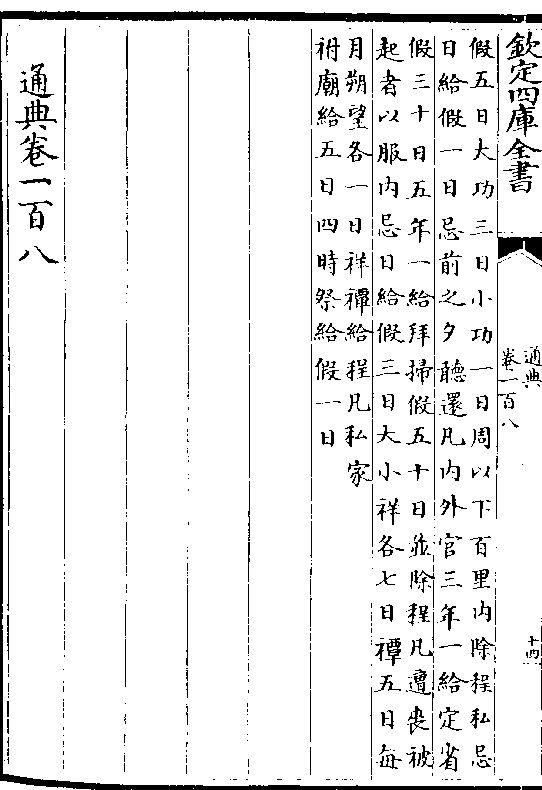 欽定四庫全書
通典
卷一百八
十四
假五日大功三日小功一日周以下百里内除程私忌
日給假一日忌前之夕聽還凡内外官三年一給定省
假三十日五年一給拜掃假五十日並除程凡遭喪被
起者以服内忌日給假三日大小祥各七日禫五日每
月朔望各一日祥禫給程凡私家
祔廟給五日四時祭給假一日
通典卷一百八